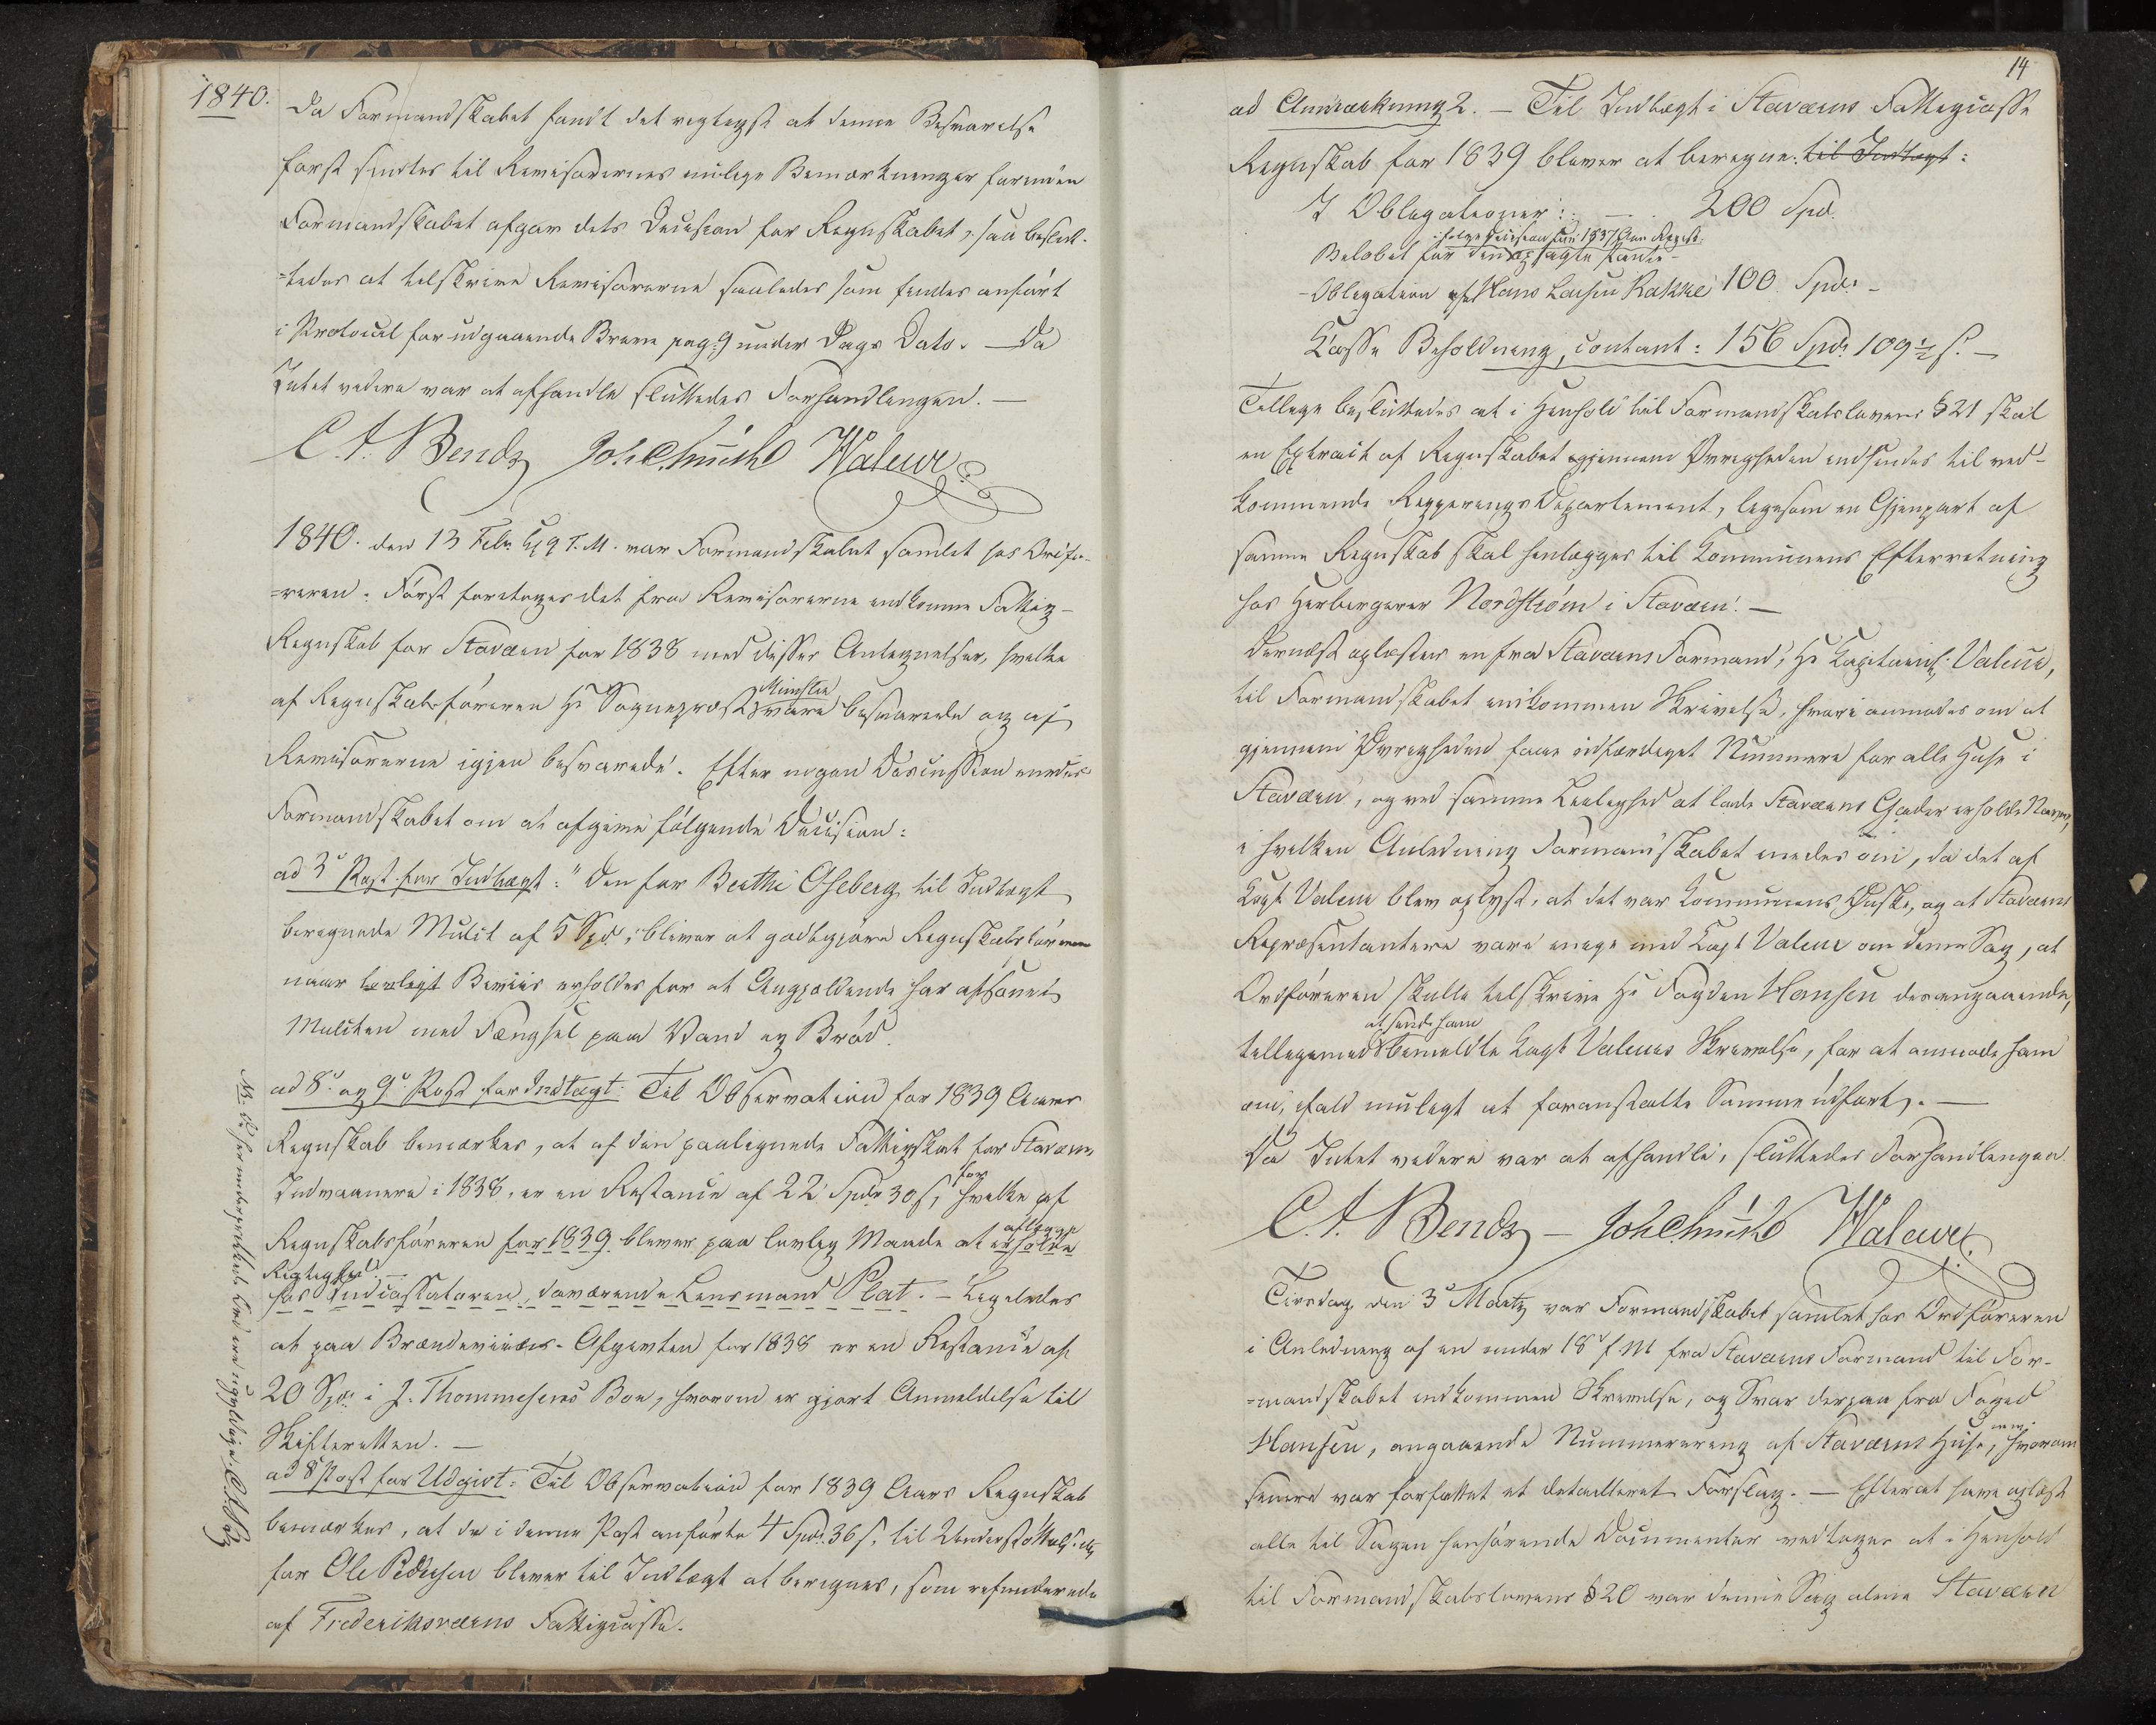 1840.
Da Formandskabet fandt det rigtigst at denne Besvarelse
først sendtes til Revisorernes mulige Bemærkninger forinden
Formandskabet afgav dets Decision for Regnskabet, saa beslut-
=tedes at tilskrive Revisorerne saaledes som findes anført
i Protocol for udgaaende Breve pag. 9 under Dags Dato. — Da
Intet videre var at afhandle sluttedes Forhandlingen. —
C. A. Bendz Joh Chmichl Waleur
1840. den 13 Febr. Kl. 9 F.M. var Formandskabet samlet hos Ordfø-
=reren. Først foretoges det fra Revisorerne indkomne Fattig-
Regnskab for Staværn for 1838 med disses Antegnelser, hvilke
af Regnskabsføreren Hr Sogneprest Münster vare besvarede og af
Revisorerne igjen besvarede. Efter nogen Discussion enedes
Formandskabet om at afgive følgende Decision:
ad 3die Post for Indtægt: "Den for Berthe Oseberg til Indtægt
beregnede Mulct af 5 Spd., bliver at godtgjøre Regnskabsføreren
naar lovligt Beviis erholdes for at Angjældende har afsonet
Mulcten med Fængsel paa Vand og Brød.
ad 8de og 9de Post for Indtægt: Til Observation for 1839 Aars
Regnskab bemærkes, at af den paalignede Fattigskat for Staværns
Indvaanere i 1838, er en Restance af 22 Spdr 30 s, for hvilke af
Regnskabsføreren for 1839 bliver paa lovlig Maade at erholde aflægge
Rigtighed. —
hos Indcassatoren, daværende Lensmand Plat. — Ligeledes
at paa Brændeviins-Afgivten for 1838 er en Restance af
20 Spd. i J. Thommesens Boe, hvorom er gjort Anmeldelse til
Skifteretten. —
ad 8 Post for Udgivt: Til Observation for 1839 Aars Regnskab
bemærkes, at de i denne Post anførte 4 Spd. 36 s. til Understøttelse
for Ole Pedersen bliver til Indtægt at beregnes, som refunderede
af Frederiksværns Fattigcasse.
NB. De her underprikkede Ord ere ugyldige.
14
ad Anmærkning 2. — Til Indtægt i Staværns Fattigcasse
Regnskab for 1839 bliver at beregne: til Indtægt:
I Obligationer: — 200 Spd.
ifølge Decision for 1837 Aars Regnsk.
Beløbet for den opsagte Pante-
-Obligation af Hans Larsen Rakke 100 Spd. —
Casse Beholdning, contant: 156 Spd. 109½ s. —
Tillige besluttedes at i Henhold til Formandskabslovens § 21 skal
en Extract af Regnskabet igjennem Øvrigheden indsendes til ved-
kommende Regjerings Departement, ligesom en Gjenpart af
samme Regnskab skal henlægges til Kommunens Efterretning
hos Herbergerer Nordstrøm i Staværn. —
Dernæst oplæstes en fra Staværns Formand, Hr Capitain Valeur,
til Formandskabet indkommen Skrivelse, hvori anmodes om at
gjennem Øvrigheden faae udfærdiget Nummere for alle Huse i
Staværn, og ved samme Leilighed at lade Staværns Gader erholde Navne,
i hvilken Anledning Formandskabet enedes om, da det af
Capt Valeur blev oplyst, at det var Kommunens Ønske, og at Staværns
Repræsentantere vare enige med Capt Valeur om denne Sag, at
Ordføreren skulle tilskrive Hr Fogden Hansen desangaaende,
at sende ham
tilligemed bemeldte Capt Valeurs Skrivelse, for at anmode ham
om, ifald muligt at foranstalte Samme udført. —
Da Intet videre var at afhandle, sluttedes Forhandlingen
C. A. Bendz — Joh Chmichl Waleur
Tirsdag den 3die Martz var Formandskabet samlet hos Ordføreren
i Anledning af en under 18de f M fra Staværns Formand til For-
=mandskabet indkommen Skrivelse, og Svar derpaa fra Foged
Hansen, angaaende Nummerering af Staværns Huse, hvorom
senere var forfattet et detailleret Forslag. — Efterat have oplæst
alle til Sagen henhørende Documenter vedtoges at i Henhold
til Formandskabslovens § 20 var denne Sag alene Staværn